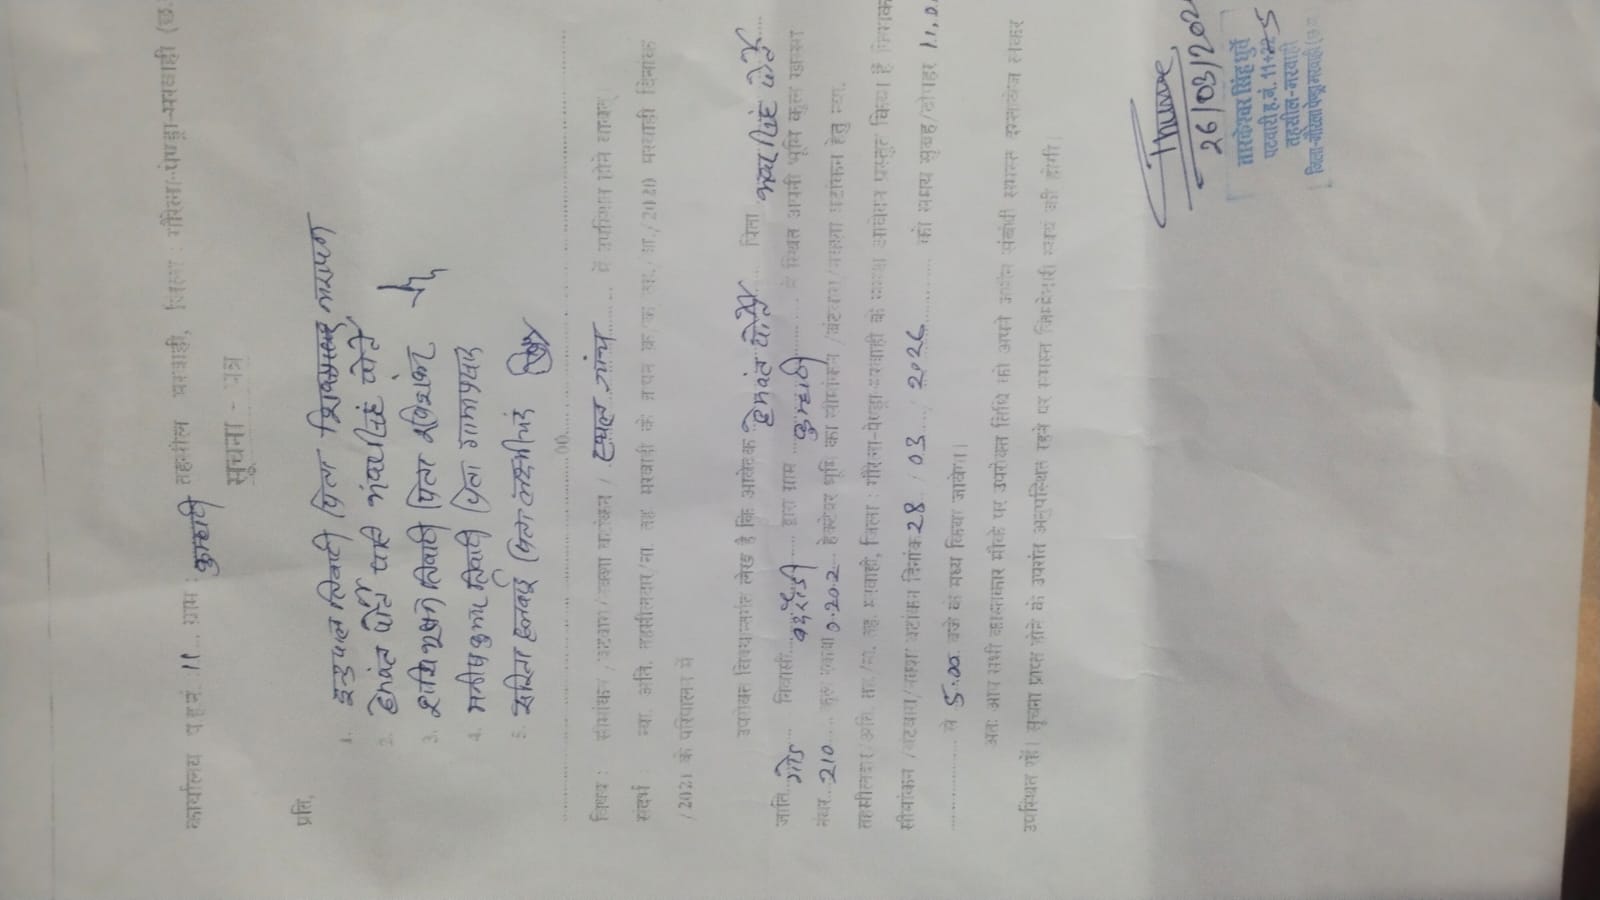 कार्यालय प.ह.नं. 11 ग्राम : कुम्हारी तहसील मरवाही, जिला : गौरेला-पेण्ड्रा-मरवाही (छ.
सूचना - पत्र
प्रति,
1. इन्द्रपाल तिवारी पिता नारायण
2. हेमंत पोर्ते
3. शशिभूषण तिवारी पिता रविशंकर
4. मनीष कुमार तिवारी पिता
5. सरिता पिता
विषय : सीमांकन / बटवारा / नक्शा बटांकन / स्थल जांच में उपस्थित होने बाबत्
संदर्भ : न्या. अति. तहसीलदार/ना. तह मरवाही के /2021) मरवाही दिनांक
/2021 के परिपालन में
उपरोक्त विषयान्तर्गत लेख है कि आवेदक हेमंत पोर्ते पिता पोर्ते
जाति गोंड निवासी द्वारा ग्राम कुम्हारी में स्थित अपनी भूमि कुल खसरा
नंबर 210 कुल रकबा 0.202 हेक्टेयर भूमि का सीमांकन /बंटवारा/नक्शा बटांकन हेतु न्या.
तहसीलदार/अति. तह./ना. तह. मरवाही, जिला : गौरेला-पेण्ड्रा-मरवाही के समक्ष आवेदन प्रस्तुत किया है जिसका
सीमांकन /बटवारा/नक्शा बटांकन दिनांक 28 / 03 / 2026 को समय सुबह/दोपहर 11.0
से 5:00 बजे के मध्य किया जावेगा।
अतः आप सभी मौके पर उपरोक्त तिथि को अपने जमीन संबंधी समस्त दस्तावेज लेकर
उपस्थित रहें। सूचना प्राप्त होने के उपरांत अनुपस्थित रहने पर समस्त जिम्मेदारी स्वयं की होगी।
26/03/202
तारकेश्वर सिंह धुर्वे
पटवारी ह.नं. 11+
तहसील-मरवाही
जिला-गौरेला पेण्ड्रा मरवाही (छ.ग.